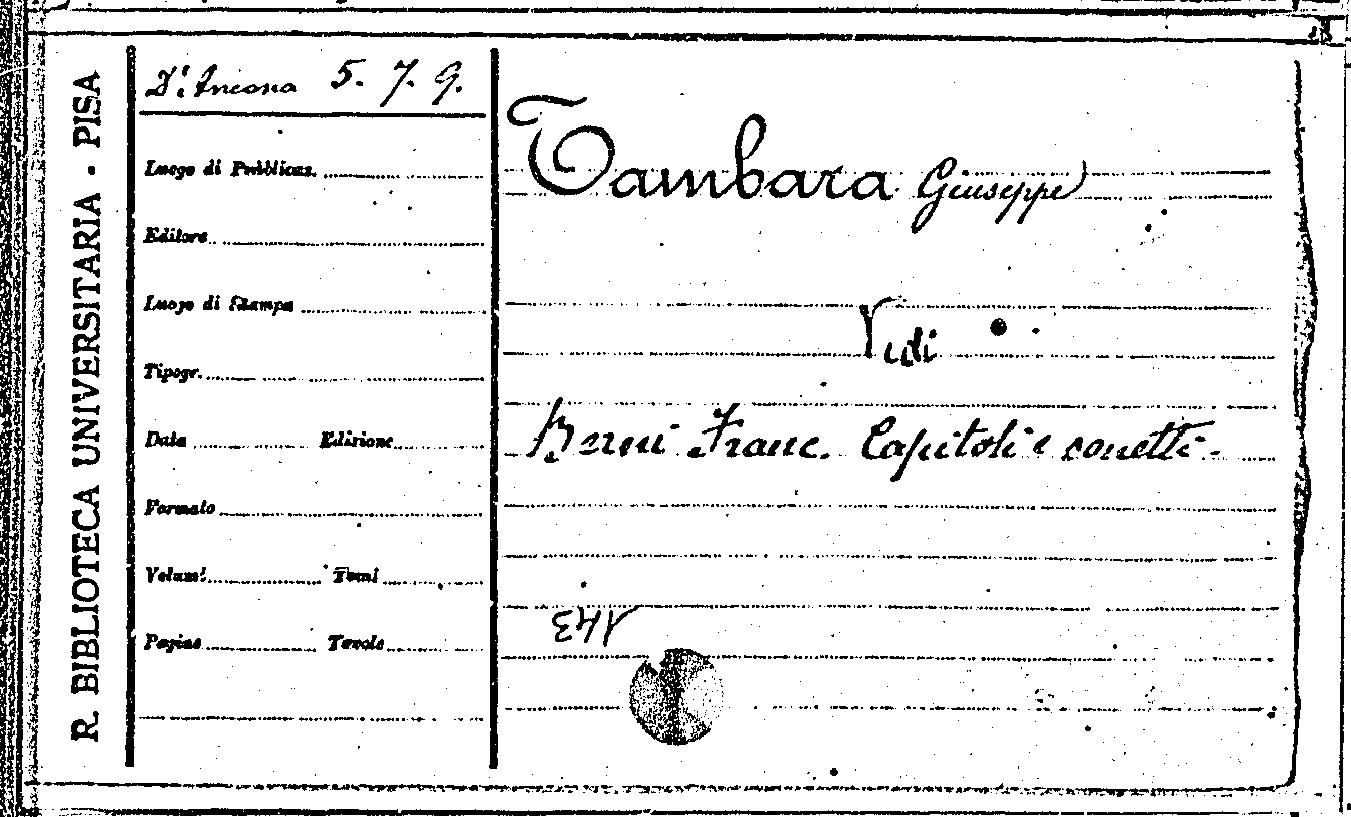 R. BIBLIOTECA UNIVERSITARIA · PISA
D'Ancona 5. 7. 9.
Luogo di Pubblicaz.
Editore
Luogo di Stampa
Tipogr.
Data Edizione
Formato
Volumi Tomi
Pagine Tavole
Tambara Giuseppe
Vedi
Berni Franc. Capitoli e sonetti.
143